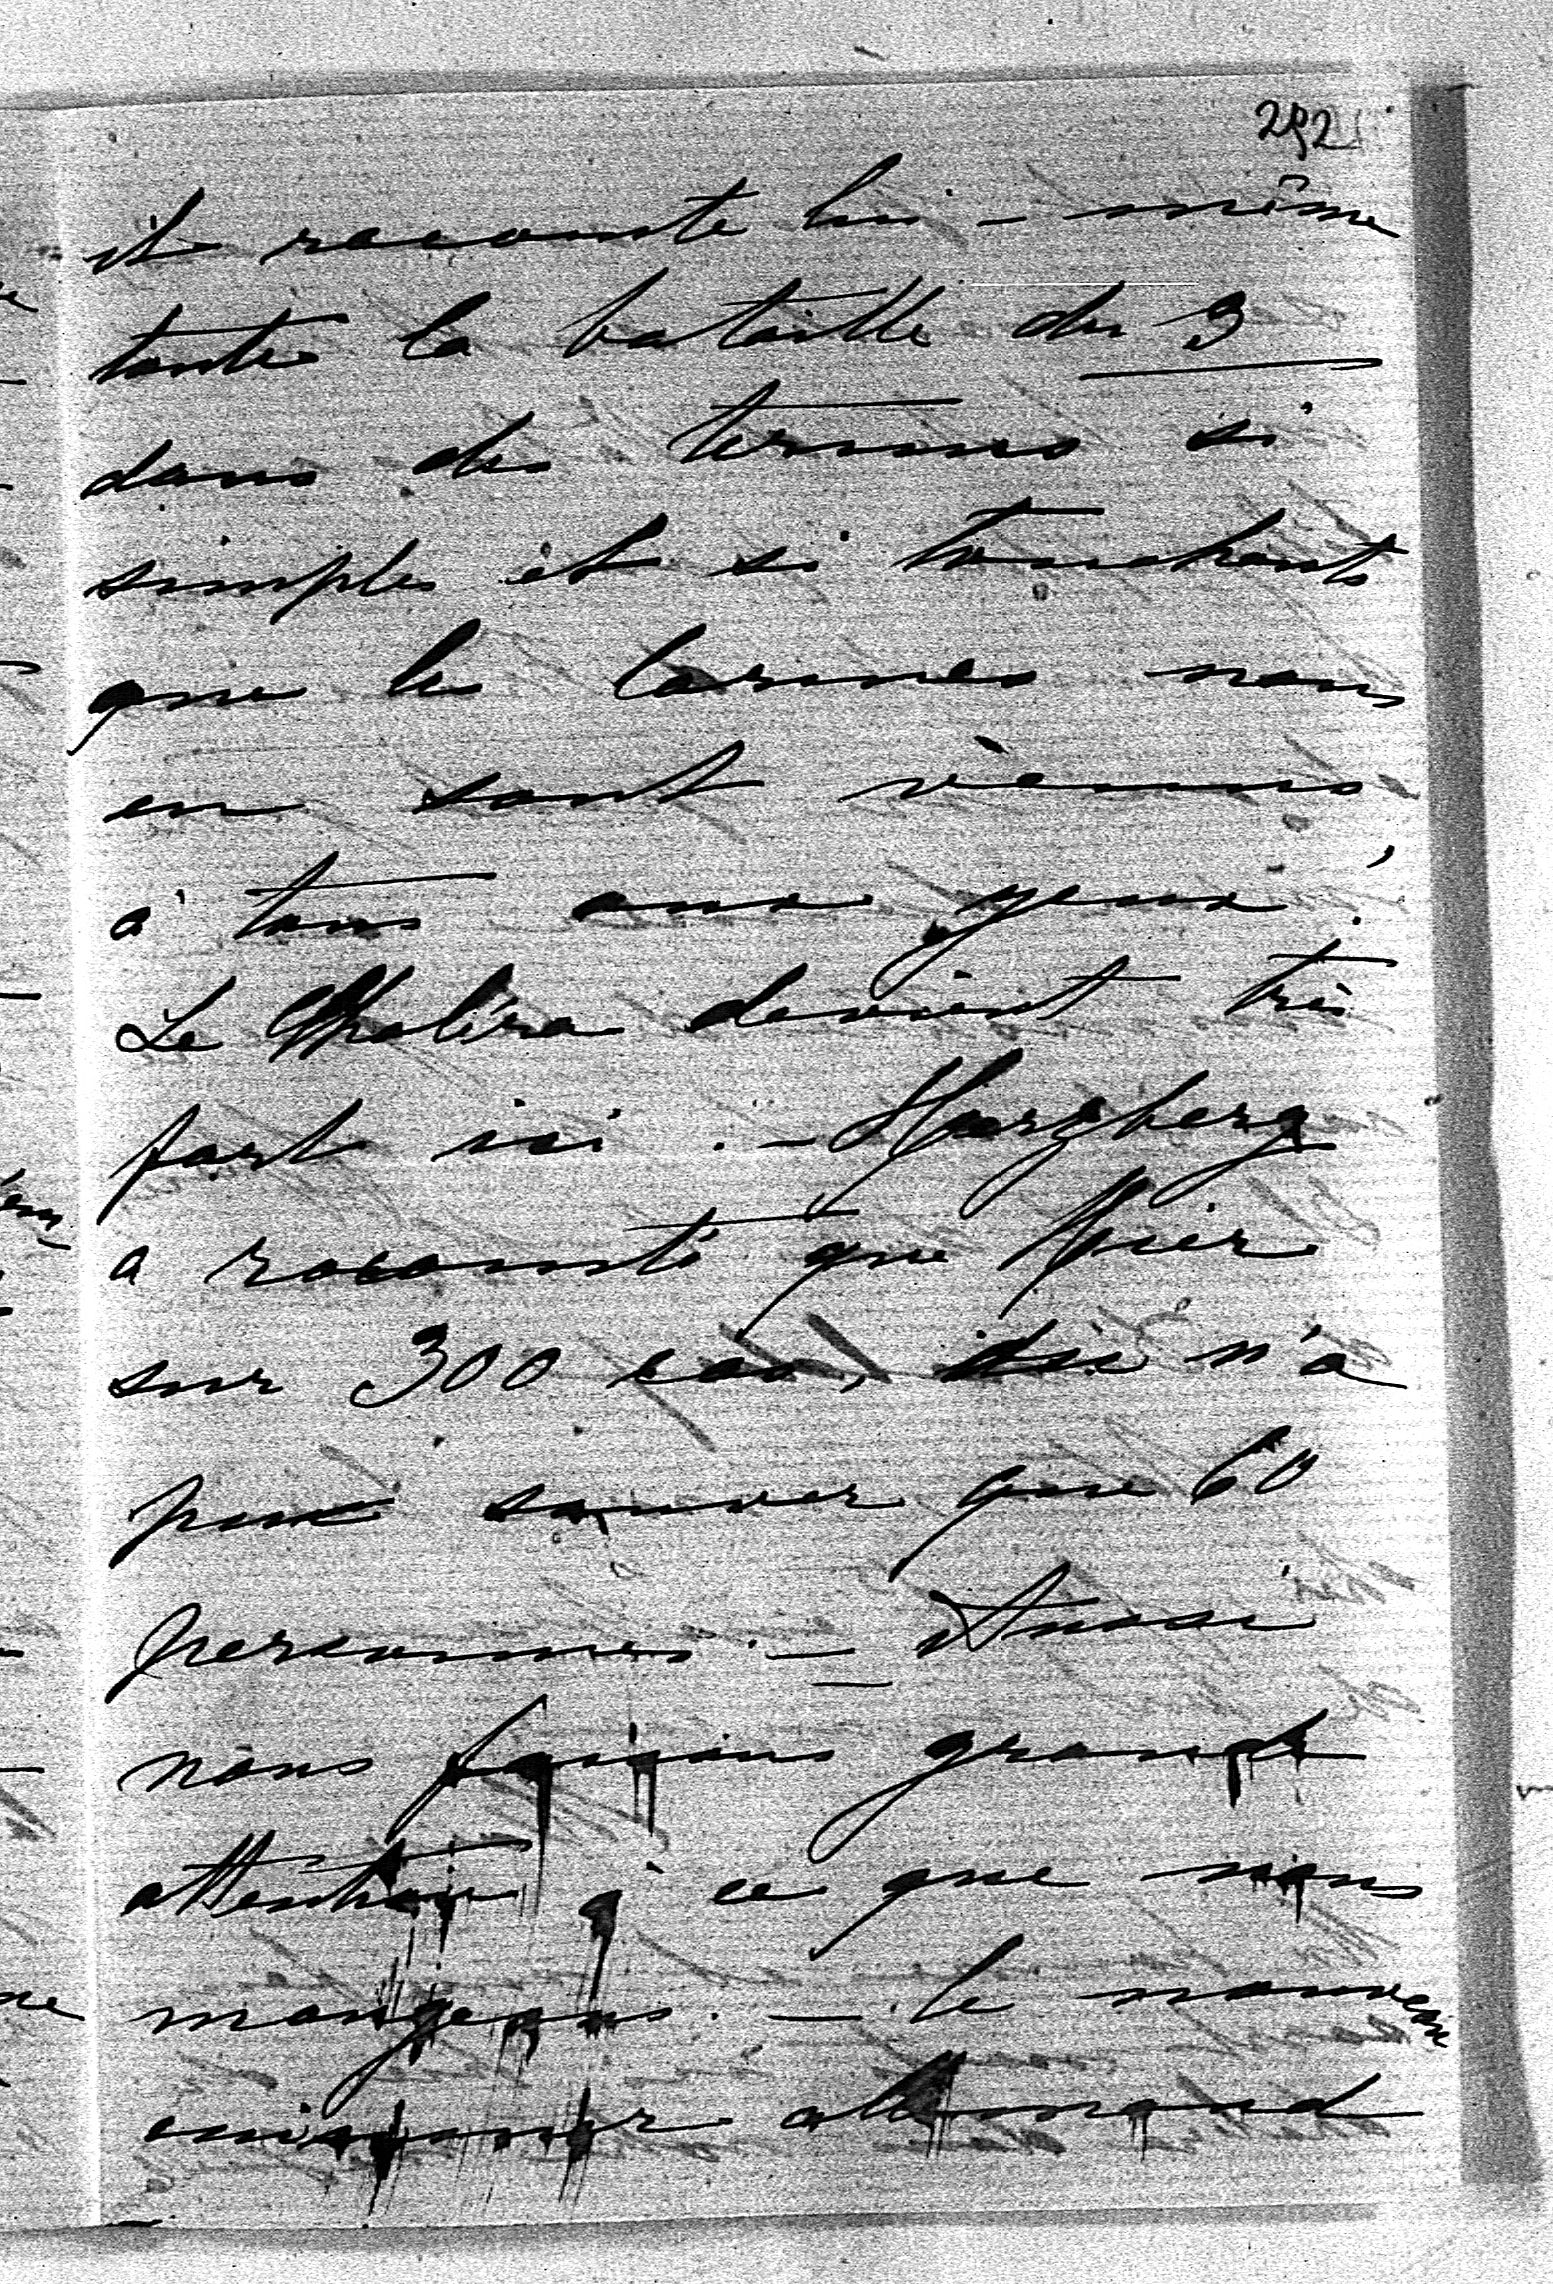 292
il raconte lui-même
toute la bataille du 3
dans des termes si
simples et si touchants
que les larmes nous
en sont venues
à tous aux yeux !
Le Choléra devient très
fort ici. — Herzberg
a raconté que hier
sur 300 cas, n'a
pu sauver que 60
personnes. — Aussi
nous faisons grande
attention à ce que nous
mangeons. — le nouveau
cuisinier allemand